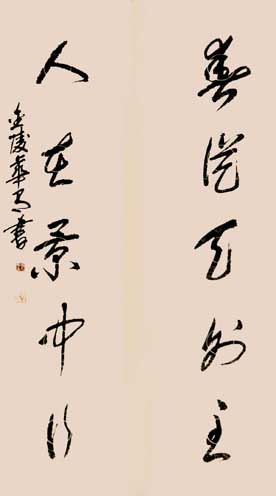 春從天外至
人在景中行
金陵華書